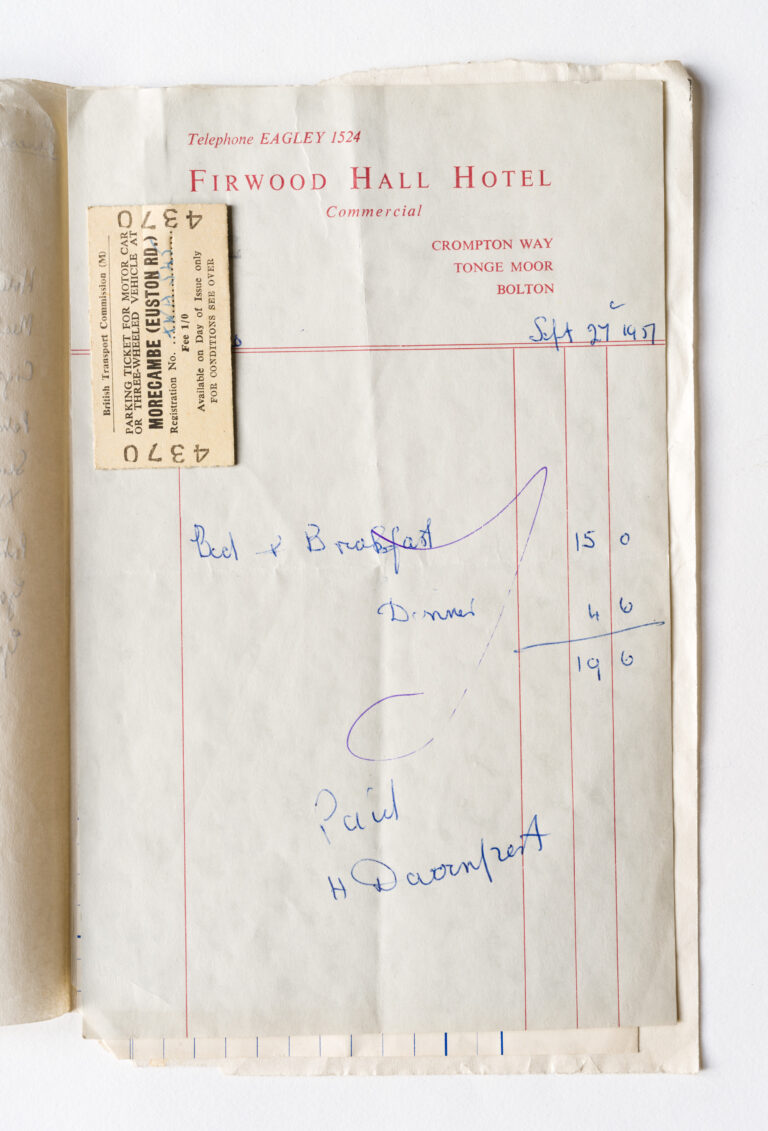 Telephone EAGLEY 1524
FIRWOOD HALL HOTEL
Commercial
CROMPTON WAY
TONGE MOOR
BOLTON
Sept 27 1957
4370
British Transport Commission (M)
PARKING TICKET FOR MOTOR CAR
OR THREE-WHEELED VEHICLE AT
MORECAMBE (EUSTON RD.)
Registration No.
Fee 1/0
Available on Day of Issue only
FOR CONDITIONS SEE OVER
4370
Bed & Breakfast 15 0
Dinner 4 6
19 6
Paid
H